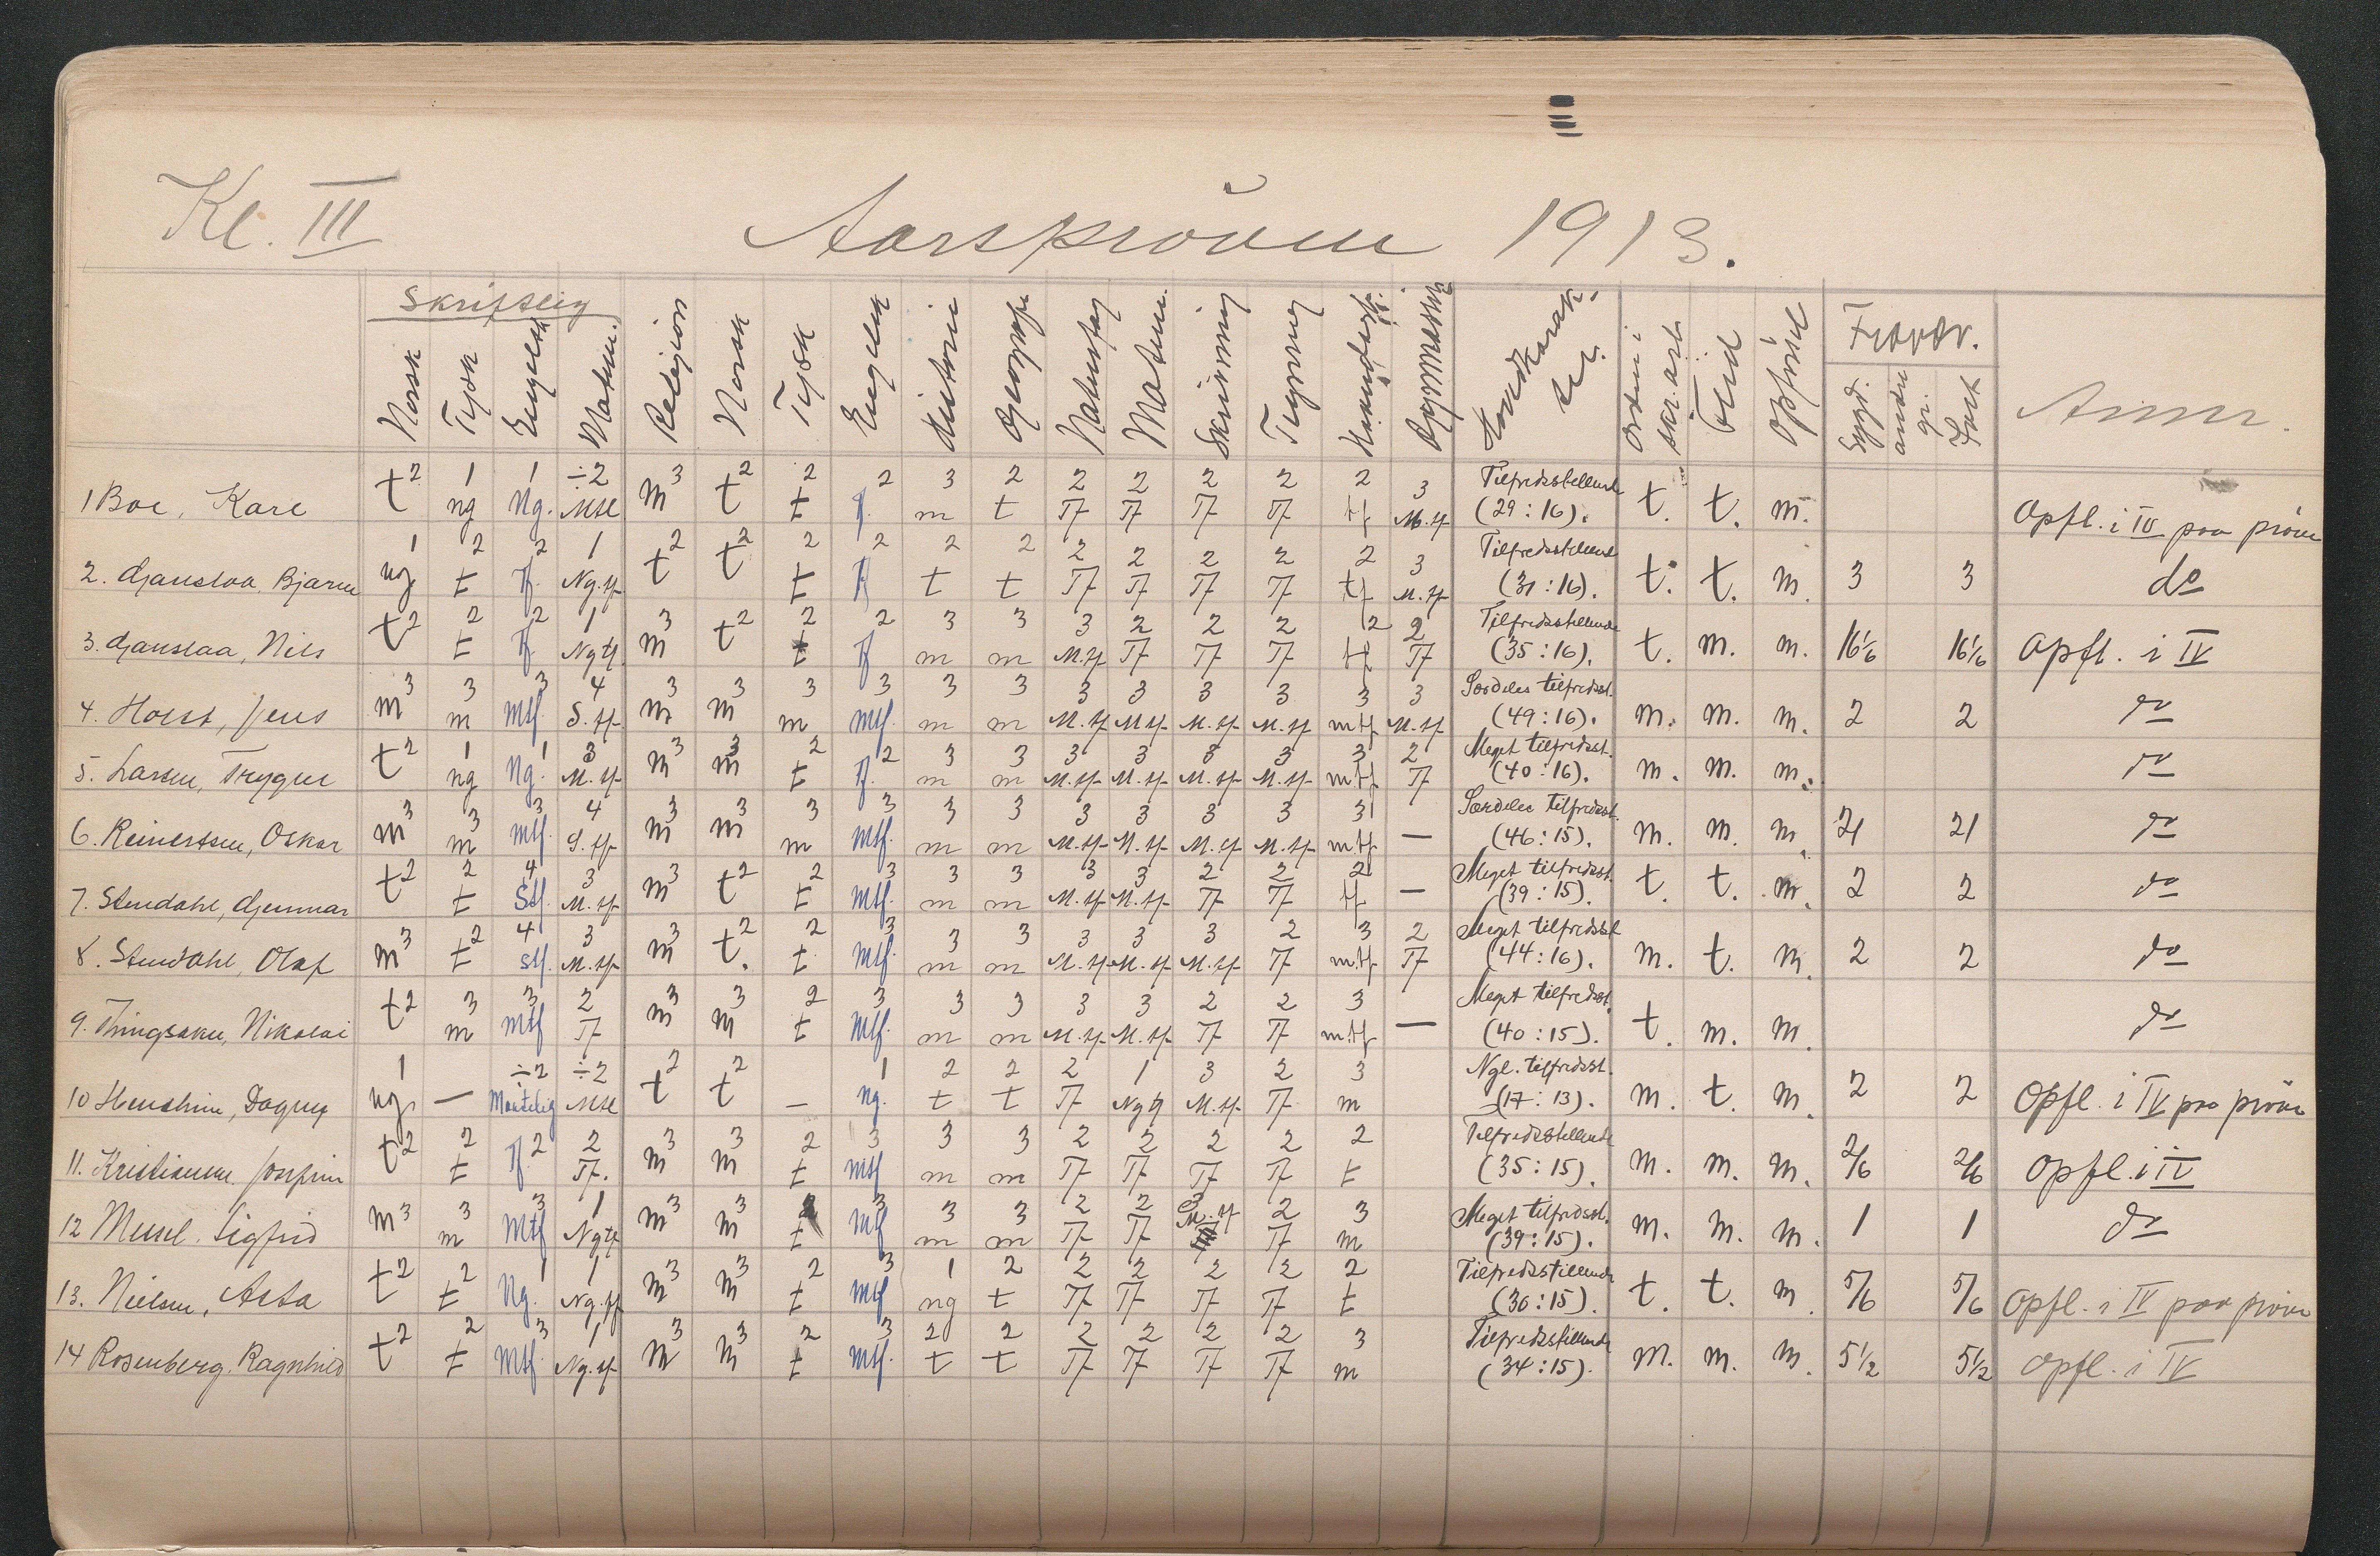 Kl. III Aarsprøven 1913.
Skriftlig
Norsk Tysk Engelsk Matem. Religion Norsk Tysk Engelsk Historie Geografi Naturfag Matem. Skrivning Tegning Gymnastik Hovedkarak- ter. Orden i skr. arb. Flid Opførsel Fravær. Sygd. andre gr. Anm.
1 Boe, Kare t2 1 ng 1 Ng. ÷2 Mtl m3 t2 2 t 2 tf. 3 m 2 t 2 Tf 2 Tf 2 Tf 2 Tf 2 tf 3 M.tf Tilfredsstillende (29:16). t. t. m. Opfl. i IV paa prøve
2. Gjanslaa, Bjarne 1 ng. 2 t 2 tf. 1 Ng.tf t2 t2 2 t 2 tf 2 t 2 t 2 Tf 2 Tf 2 Tf 2 Tf 2 tf 3 M.tf Tilfredsstillende (31:16). t. t. m. 3 3 do
3. Gjanslaa, Nils t2 2 t 2 tf. 1 Ngtf. m3 t2 2 t 2 tf 3 m 3 m 3 M.tf 2 Tf 2 Tf 2 Tf 2 tf 2 Tf Tilfredsstillende (35:16). t. m. m. 16 1/6 16 1/6 Opfl. i IV
4. Holst, Jens m3 3 m 3 Mtf. 4 S.tf. m3 m3 3 m 3 Mtf. 3 m 3 m 3 M.tf 3 M.tf 3 M.tf 3 M.tf 3 mtf 3 M.tf Særdeles tilfredsst. (49:16). m. m. m. 2 2 do
5. Larsen, Trygve t2 1 ng 1 Ng. 3 M.tf m3 m3 2 t 2 tf. 3 m 3 m 3 M.tf 3 M.tf 3 M.tf 3 M.tf 3 m.tf 2 Tf Meget tilfredsst. (40:16). m. m. m. do
6. Reinertsen, Oskar m3 3 m 3 Mtf. 4 S.tf m3 m3 3 m 3 Mtf. 3 m 3 m 3 M.tf 3 M.tf 3 M.tf 3 M.tf 3 mtf — Særdeles tilfredsst. (46:15). m. m. m. 21 21 do
7. Stendahl, Gjunnar t2 2 t 4 Stf. 3 M.tf m3 t2 2 t 3 Mtf. 3 m 3 m 3 M.tf 3 M.tf 2 Tf 2 Tf 2 tf — Meget tilfredsst. (39:15). t. t. m. 2 2 do
8. Stendahl, Olaf m3 t2 4 stf. 3 M.tf m3 t2. 2 t 3 Mtf. 3 m 3 m 3 M.tf 3 M.tf 3 M.tf 2 Tf 3 m.tf 2 Tf Meget tilfredsst (44:16). m. t. m. 2 2 do
9. Nikolai t2 3 m 3 Mtf 2 Tf m3 m3 2 t 3 Mtf. 3 m 3 m 3 M.tf 3 M.tf 2 Tf 2 Tf 3 m.tf — Meget tilfredsst. (40:15). t. m. m. do
10 Dagny 1 ng. — ÷2 Maatelig ÷2 Mtl t2 t2 — 1 ng. 2 t 2 t 2 Tf 1 Ngtf 3 M.tf 2 Tf 3 m Ngl. tilfredsst. (17:13). m. t. m. 2 2 Opfl. i IV paa prøve
11. Kristiansen, Josefine t2 2 t tf.2 2 Tf. m3 m3 2 t 3 mtf 3 m 3 m 2 Tf 2 Tf 2 Tf 2 Tf 2 t Tilfredsstillende (35:15). m. m. m. 2/6 2/6 Opfl. i IV
12 Sigfrid m3 3 m 3 Mtf 1 Ngtf m3 m3 2 t 3 Mtf 3 m 3 m 2 Tf 2 Tf 3 M.tf 2 Tf 3 m Meget tilfredsst. (39:15). m. m. m. 1 1 do
13. Nielsen, Asta t2 t2 1 Ng. 1 Ng.tf m3 m3 2 t 3 Mtf 1 ng 2 t 2 Tf 2 Tf 2 Tf 2 Tf 2 t Tilfredsstillende (30:15). t. t. m. 5/6 5/6 Opfl. i IV paa prøve
14 Rosenberg, Ragnhild t2 2 t 3 Mtf 1 Ng.tf m3 m3 2 t 3 Mtf. 2 t 2 t 2 Tf 2 Tf 2 Tf 2 Tf 3 m Tilfredsstillende (34:15). m. m. m. 5 1/2 5 1/2 Opfl. i IV